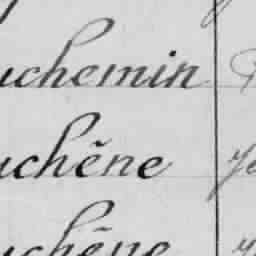 uchemin
uchêne
uchêne